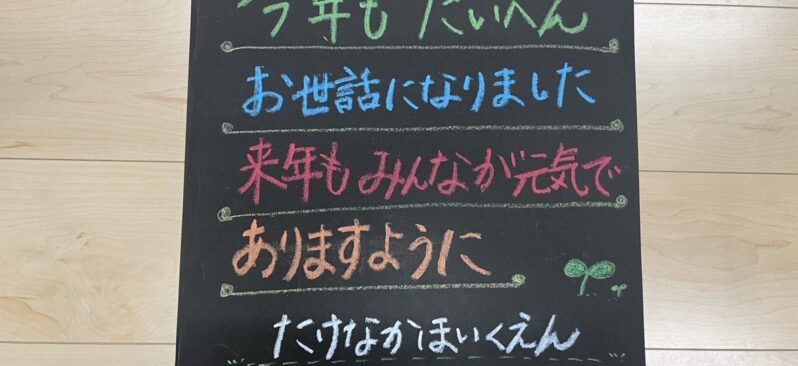 今年も たいへん
お世話になりました
来年も みんなが元気で
ありますように
たけなかほいくえん